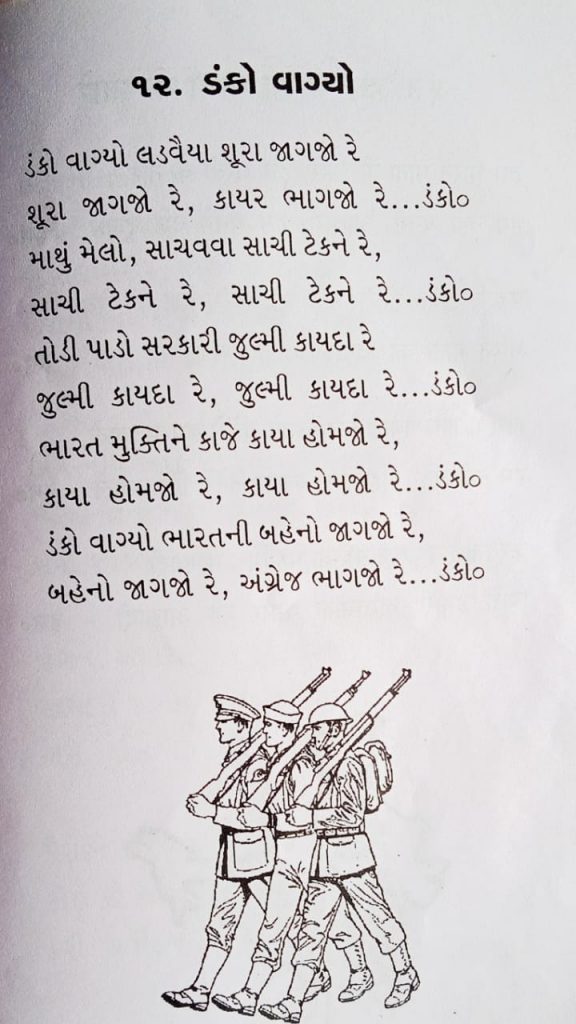 ૧૨. ડંકો વાગ્યો
ડંકો વાગ્યો લડવૈયા શૂરા જાગજો રે
શૂરા જાગજો રે, કાયર ભાગજો રે...ડંકો૦
માથું મેલો, સાચવવા સાચી ટેકને રે,
સાચી ટેકને રે, સાચી ટેકને રે...ડંકો૦
તોડી પાડો સરકારી જુલ્મી કાયદા રે
જુલ્મી કાયદા રે, જુલ્મી કાયદા રે...ડંકો૦
ભારત મુક્તિને કાજે કાયા હોમજો રે,
કાયા હોમજો રે, કાયા હોમજો રે...ડંકો૦
ડંકો વાગ્યો ભારતની બહેનો જાગજો રે,
બહેનો જાગજો રે, અંગ્રેજ ભાગજો રે...ડંકો૦